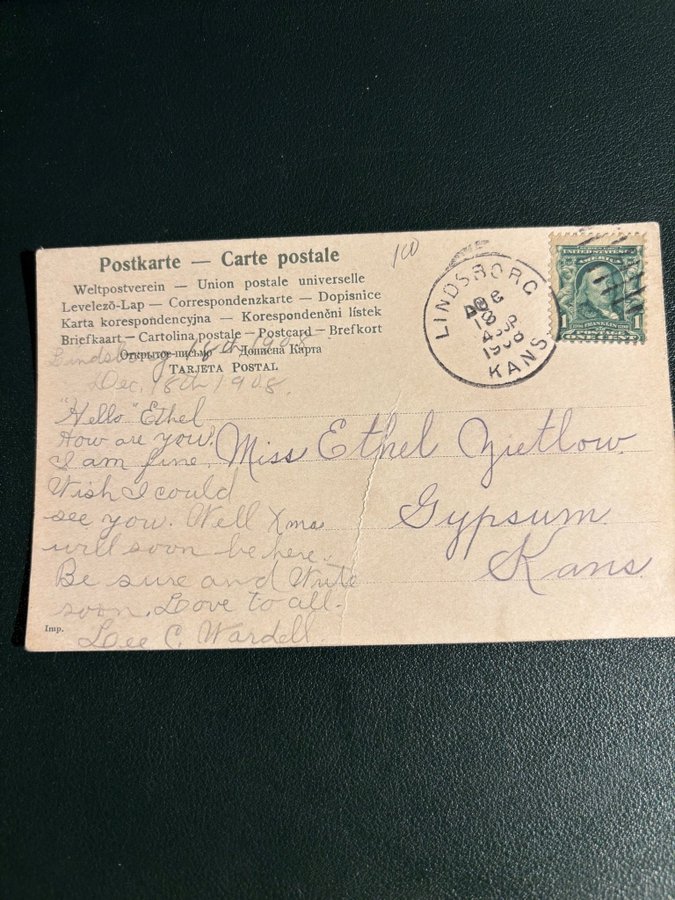 Postkarte — Carte postale
Weltpostverein — Union postale universelle
Levelező-Lap — Correspondenzkarte — Dopisnice
Karta korespondencyjna — Korespondenční lístek
Briefkaart — Cartolina postale — Postcard — Brefkort
Открытое письмо — Дописна Карта
TARJETA POSTAL
100
LINDSBORG
DEC
18
4 30P
1908
KANS.
UNITED STATES
AMERICA
1
FRANKLIN
Lindsborg 18th 1908
Dec. 18th 1908.
"Hello" Ethel
How are you?
I am fine.
Wish I could
see you. Well Xmas
will soon be here.
Be sure and Write
soon. Love to all.
Lee C. Wardell.
Miss Ethel Zietlow.
Gypsum.
Kans.
Imp.